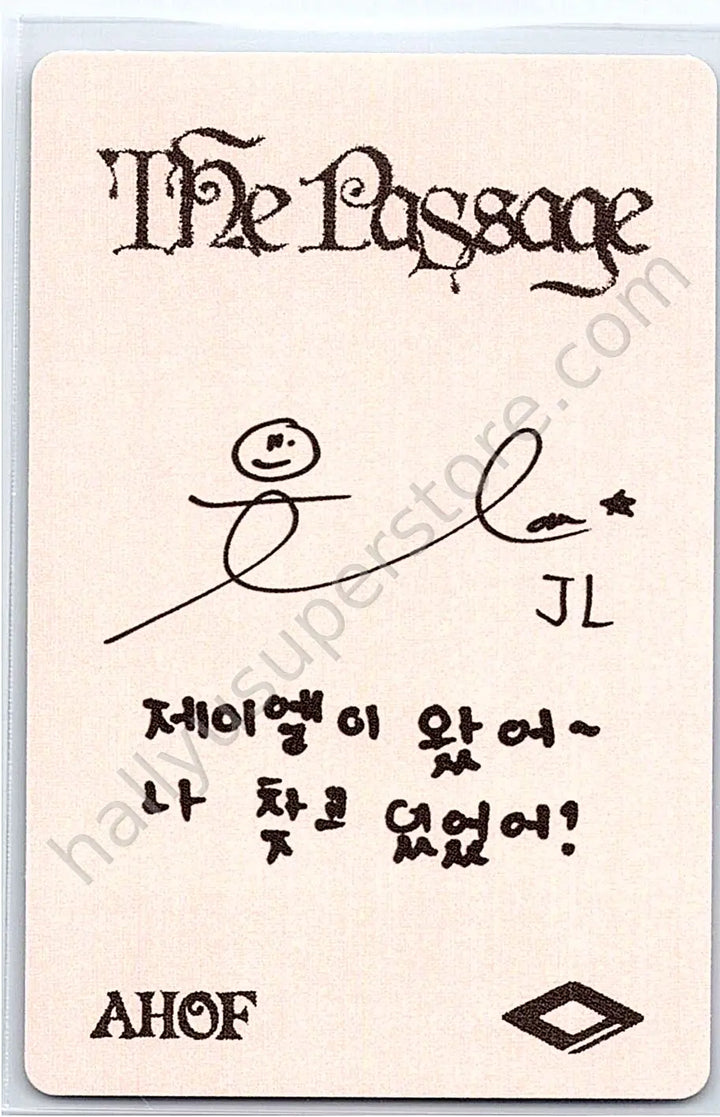 The Passage
JL
제이엘이 왔어~
나 찾고 있었어?
AHOF
hallyusuperstore.com